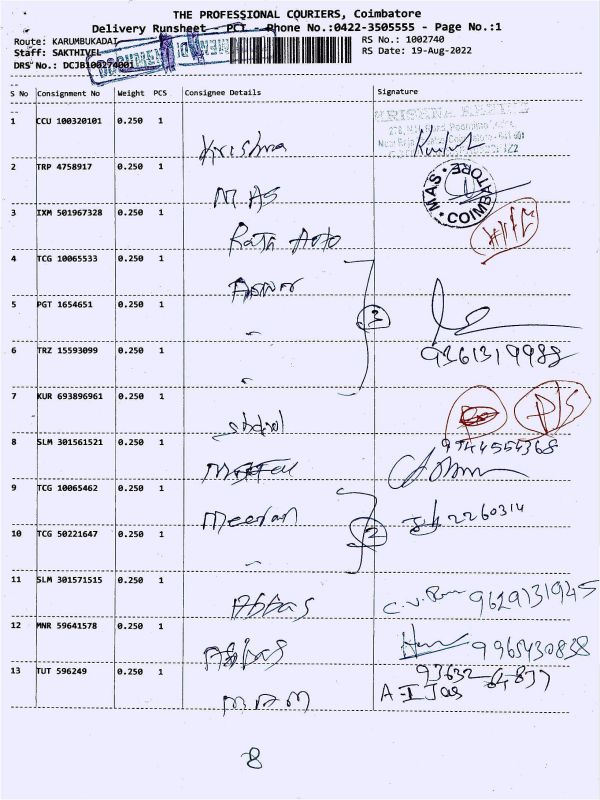 THE PROFESSIONAL COURIERS, Coimbatore
Delivery Runsheet - PCI - Phone No.:0422-3505555 - Page No.:1
Route: KARUMBUKADAI RS No.: 1002740
Staff: SAKTHIVEL RS Date: 19-Aug-2022
DRS No.: DCJB100274001
S No Consignment No Weight PCS Consignee Details Signature
1 CCU 100320101 0.250 1 Krishna
2 TRP 4758917 0.250 1 M.AS M.A.S COIMBATORE
3 IXM 501967328 0.250 1 Raja Auto
4 TCG 10065533 0.250 1
5 PGT 1654651 0.250 1 " 3
6 TRZ 15593099 0.250 1 " 9361319988
7 KUR 693896961 0.250 1 D/S
8 SLM 301561521 0.250 1 9744554368
9 TCG 10065462 0.250 1 Meeran 2260314
10 TCG 50221647 0.250 1 " 2
11 SLM 301571515 0.250 1 Abbas 9629131945
12 MNR 59641578 0.250 1 Abbas 9965430838
13 TUT 596249 0.250 1 M.A.M 93632 64837
A-I Jas
8